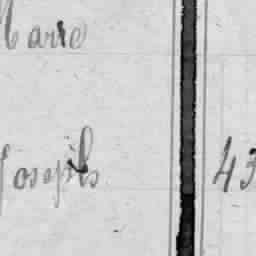 Marie
Joseph 43